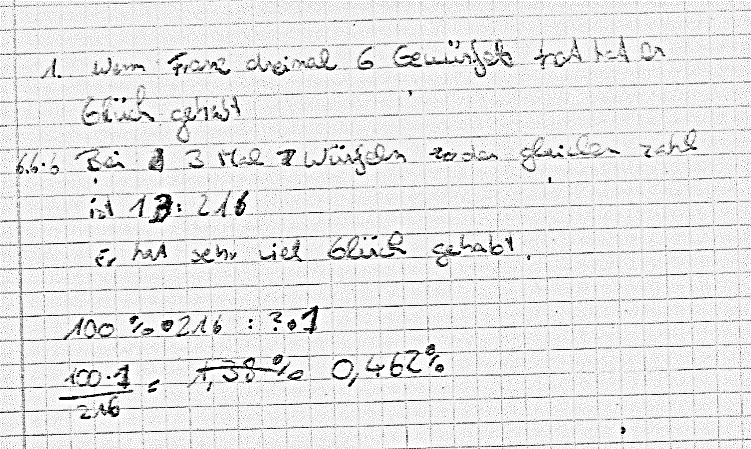 1. Wenn Franz dreimal 6 Gewürfelt hat hat er
Glück gehabt
6·6·6 Bei 3 Mal Würfeln der gleichen zahl
ist 1 : 216
Er hat sehr viel Glück gehabt.
100 % · 216 : ? · 1
100·1 / 216 = 1,38% 0,462%